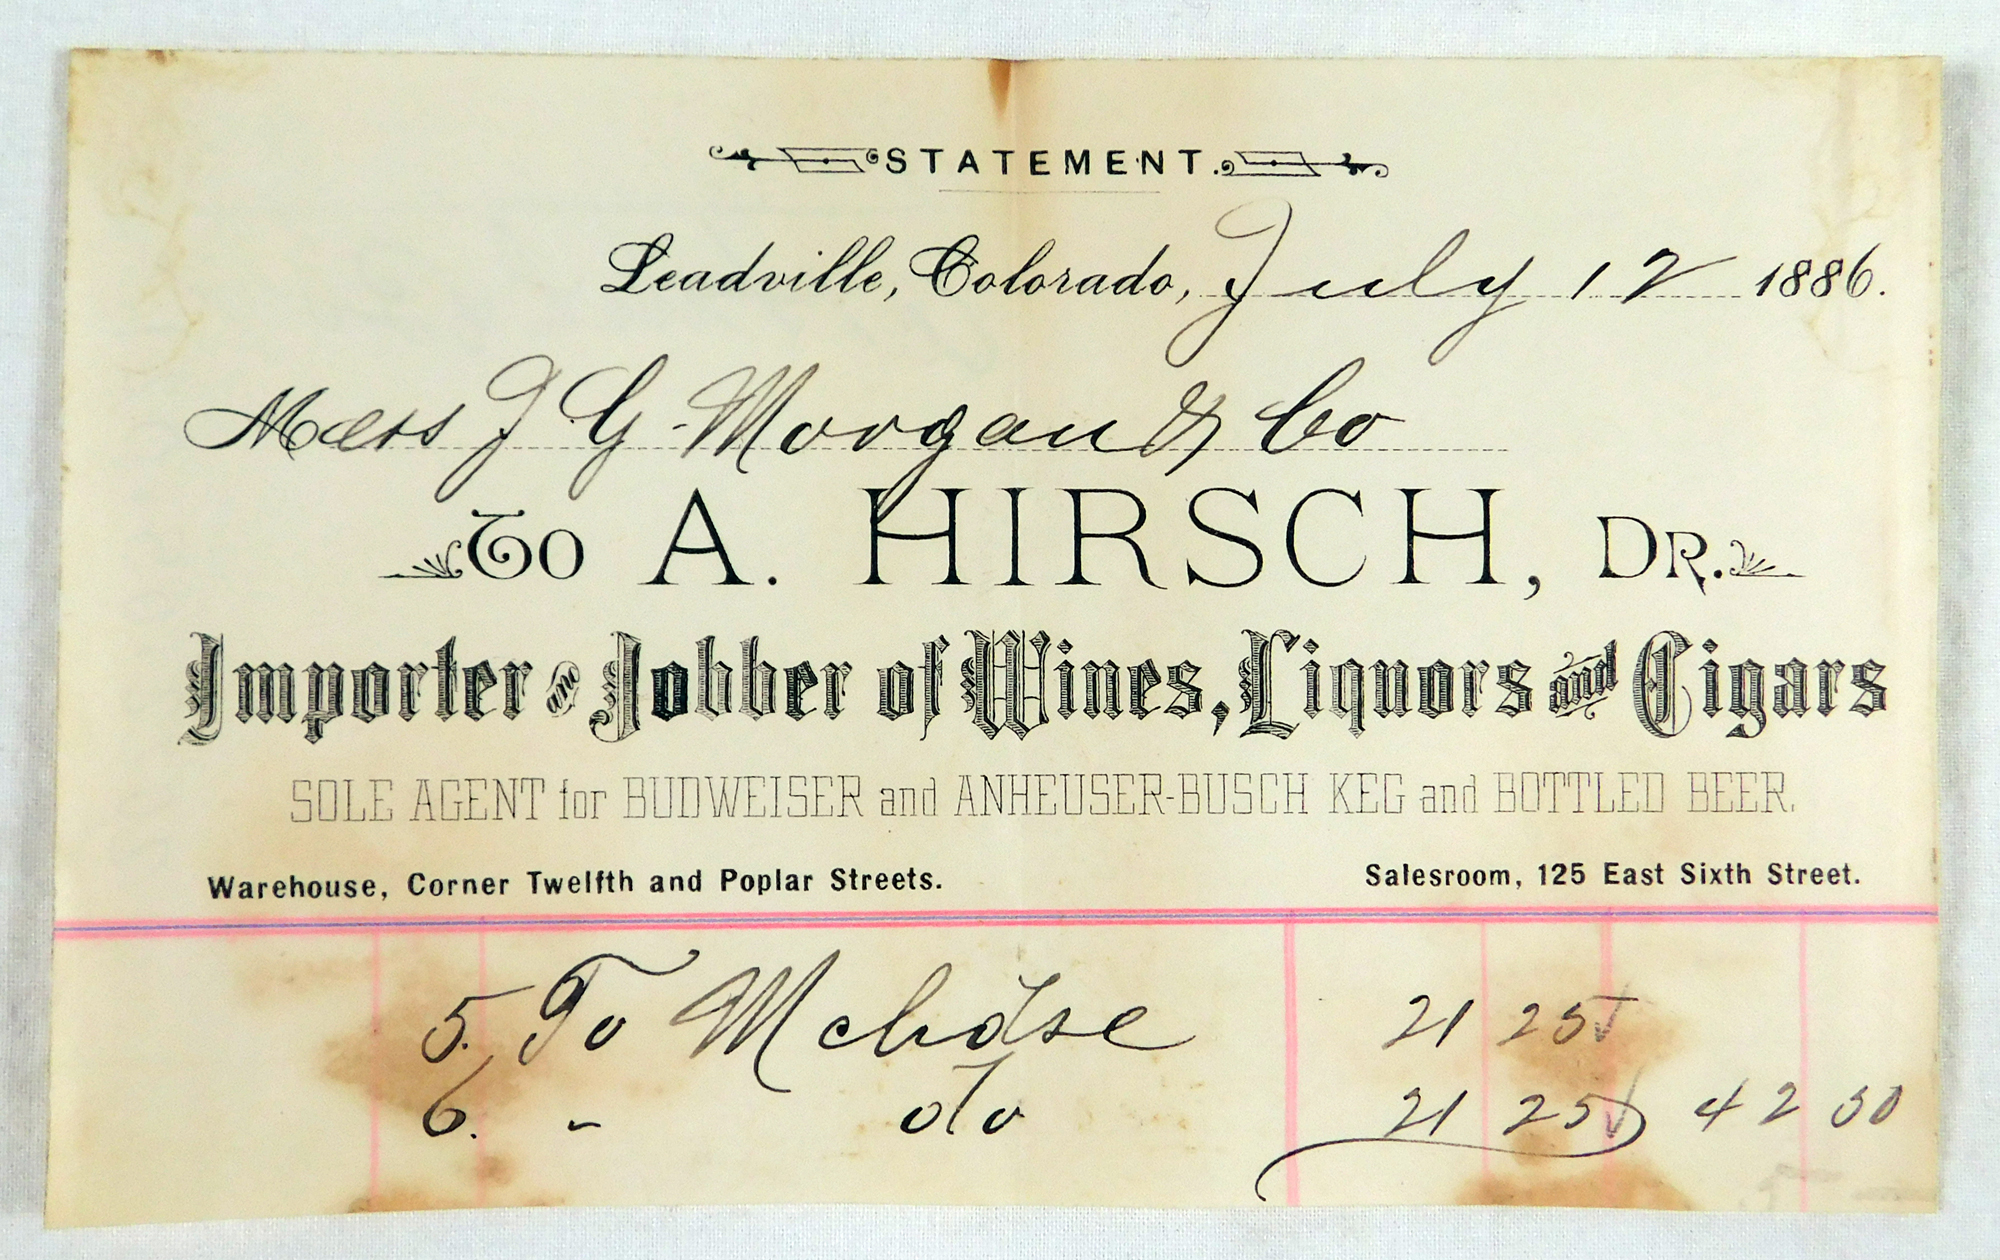 STATEMENT.
Leadville, Colorado, July 12 1886.
Mess J G Morgan & Co
To A. HIRSCH, DR.
Importer and Jobber of Wines, Liquors and Cigars
SOLE AGENT for BUDWEISER and ANHEUSER-BUSCH KEG and BOTTLED BEER.
Warehouse, Corner Twelfth and Poplar Streets. Salesroom, 125 East Sixth Street.
5. To Mchdse 21 25
6. " do 21 25 42 50